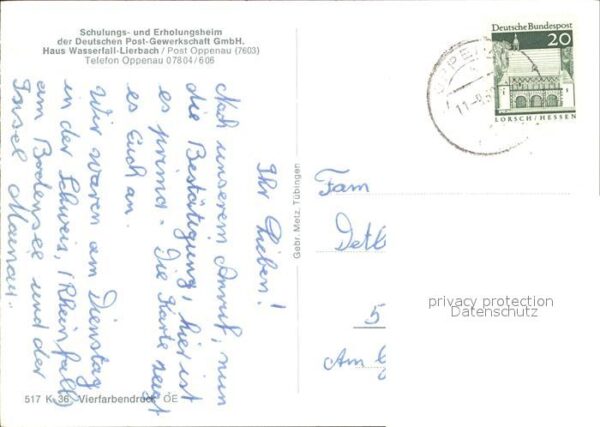 Schulungs- und Erholungsheim
der Deutschen Post-Gewerkschaft GmbH.
Haus Wasserfall-Lierbach / Post Oppenau (7603)
Telefon Oppenau 07804/606
Ihr Lieben!
Nach unserem Anruf, nun
die Bestätigung, hier ist
es prima. Die Karte zeigt
es Euch an.
Wir waren am Dienstag
in der Schweiz, (Rheinfall)
am Bodensee und der
Insel Mainau.
517 K 36 Vierfarbendruck OE
Gebr. Metz, Tübingen
Deutsche Bundespost
20
LORSCH/HESSEN
Fam
Detl
5
Am
privacy protection
Datenschutz